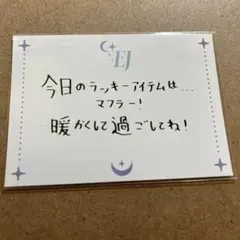 EJ
今日のラッキーアイテムは…
マフラー！
暖かくして過ごしてね！